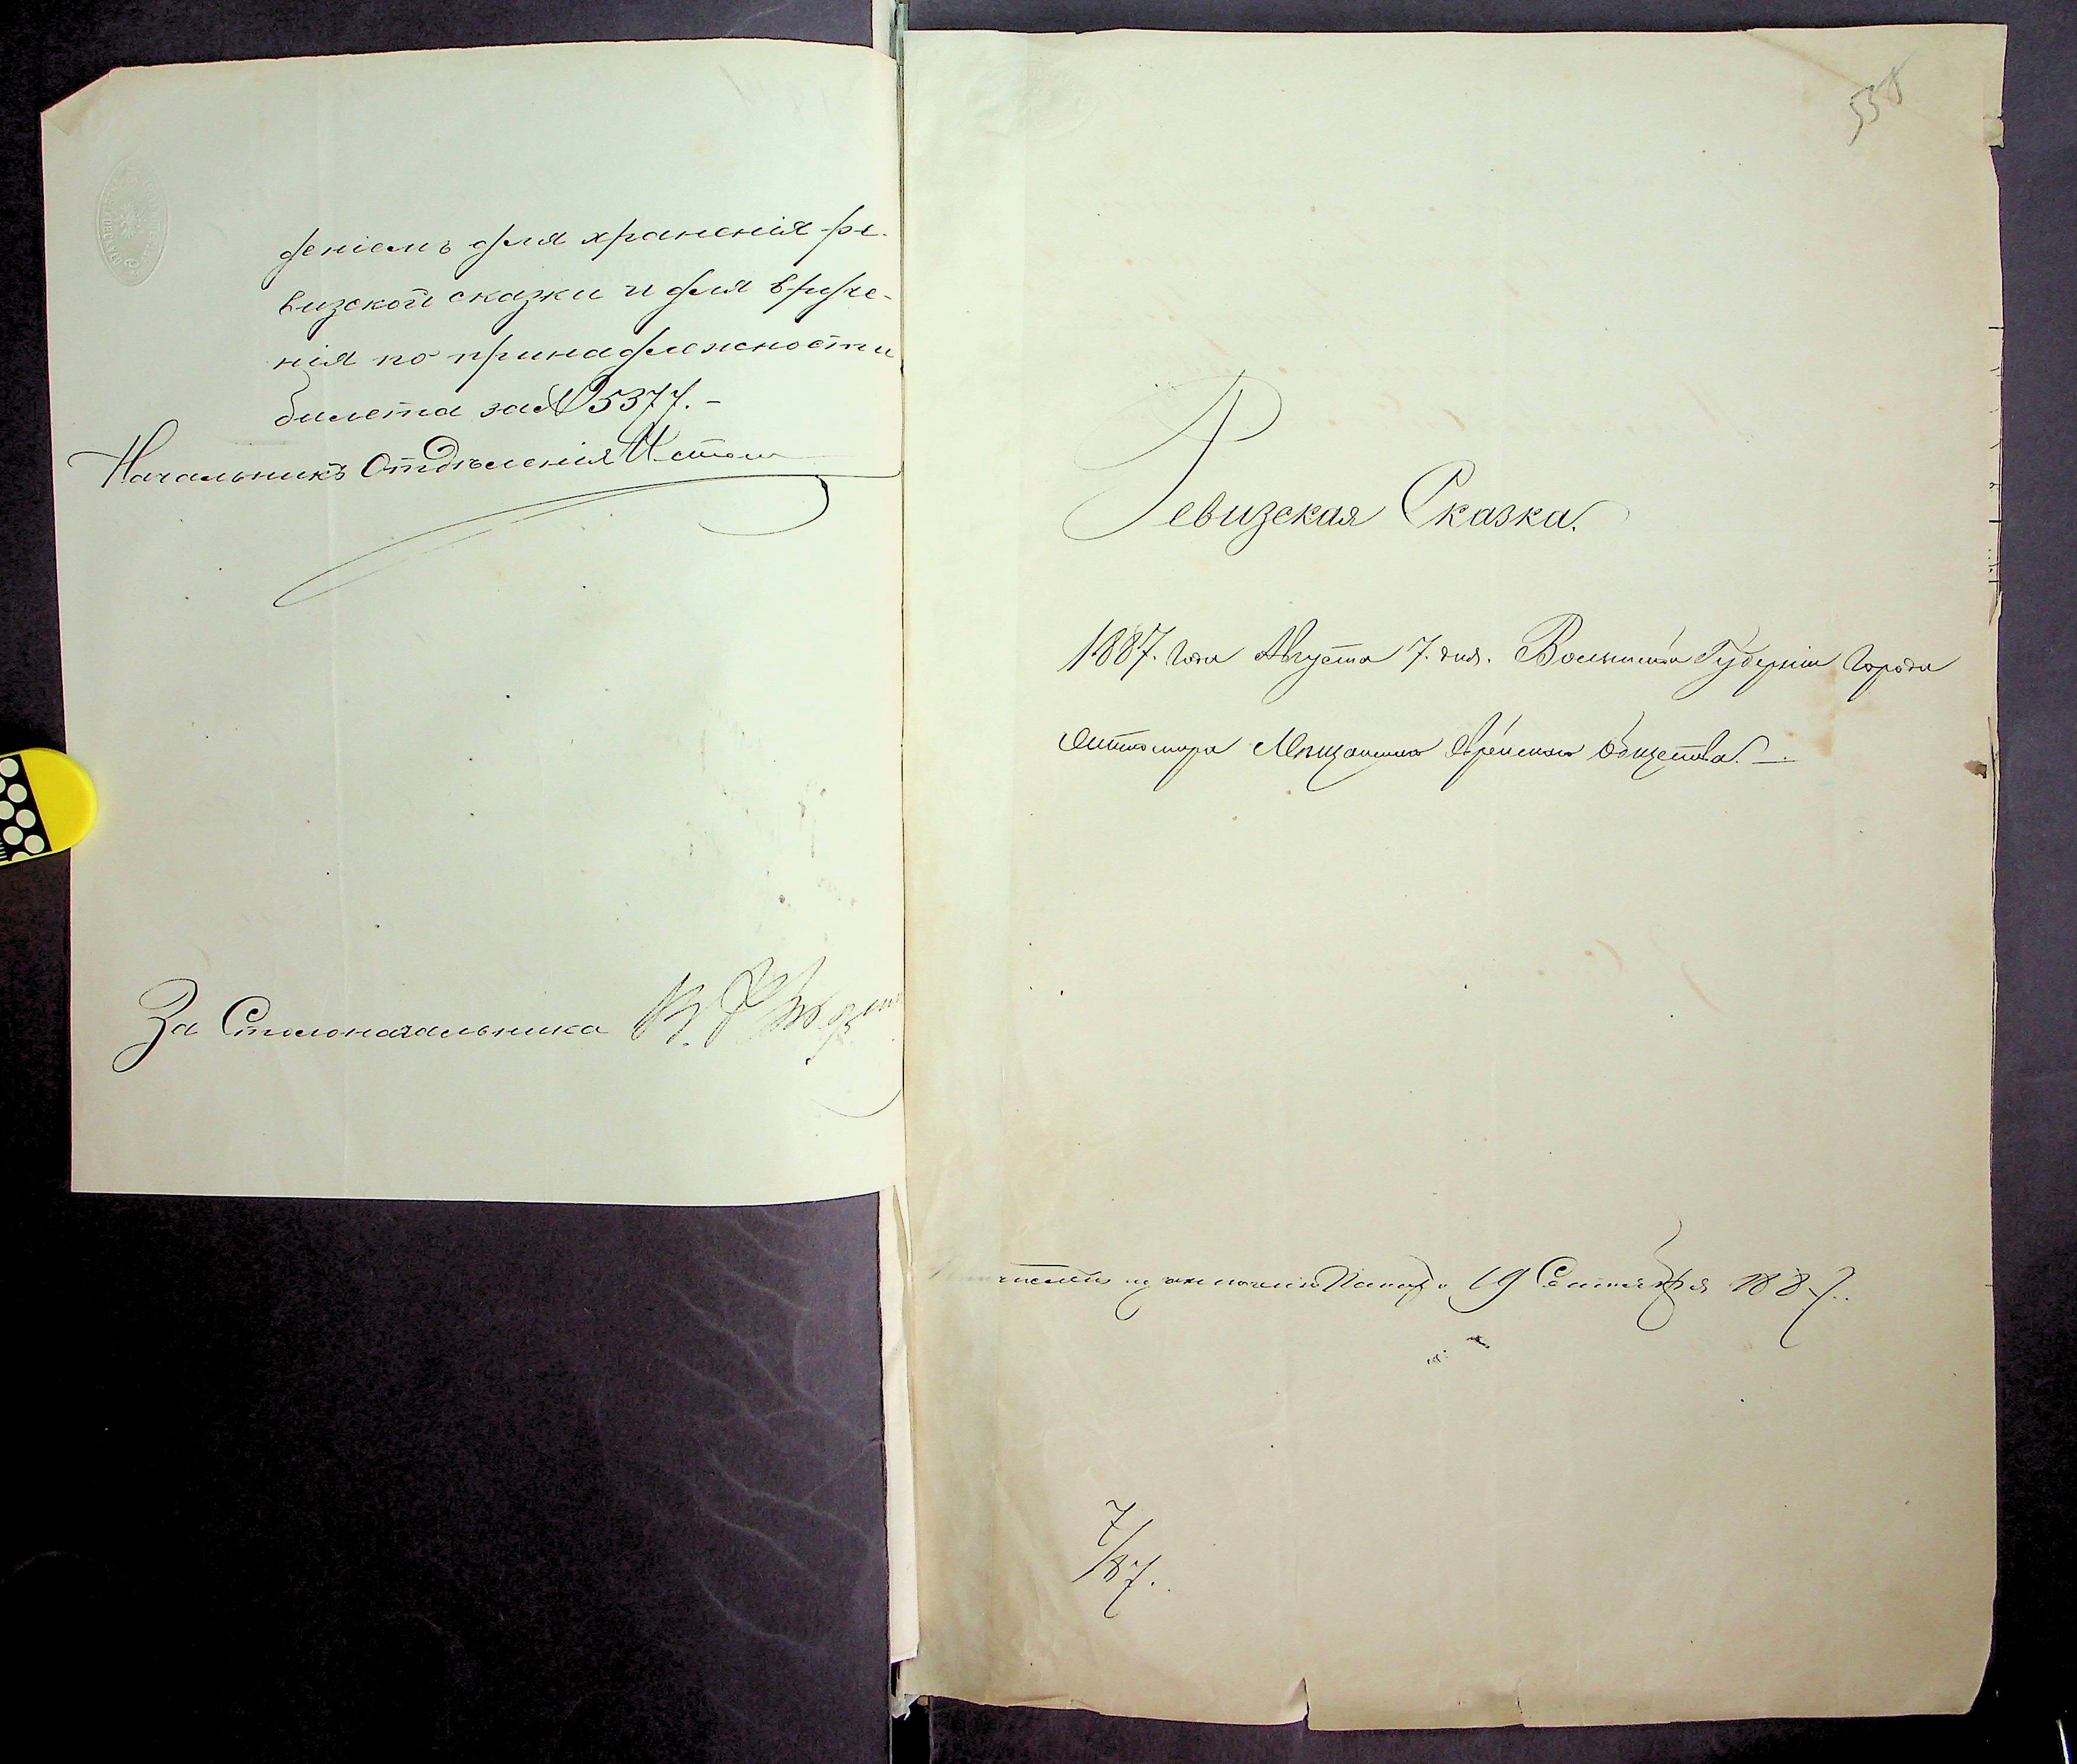 деніемъ для храненія ре-
визской сказки и для вруче-
нія по принадлежности
билета за № 5377.-
Начальникъ Отдѣленія
За Столоначальника
538
Ревизская Сказка.
1887. Года Августа 7. дня. Волынской Губерніи Города
Житомира Мѣщанскаго Еврейскаго Общества. -
19 Сентября 1887.
7/87.